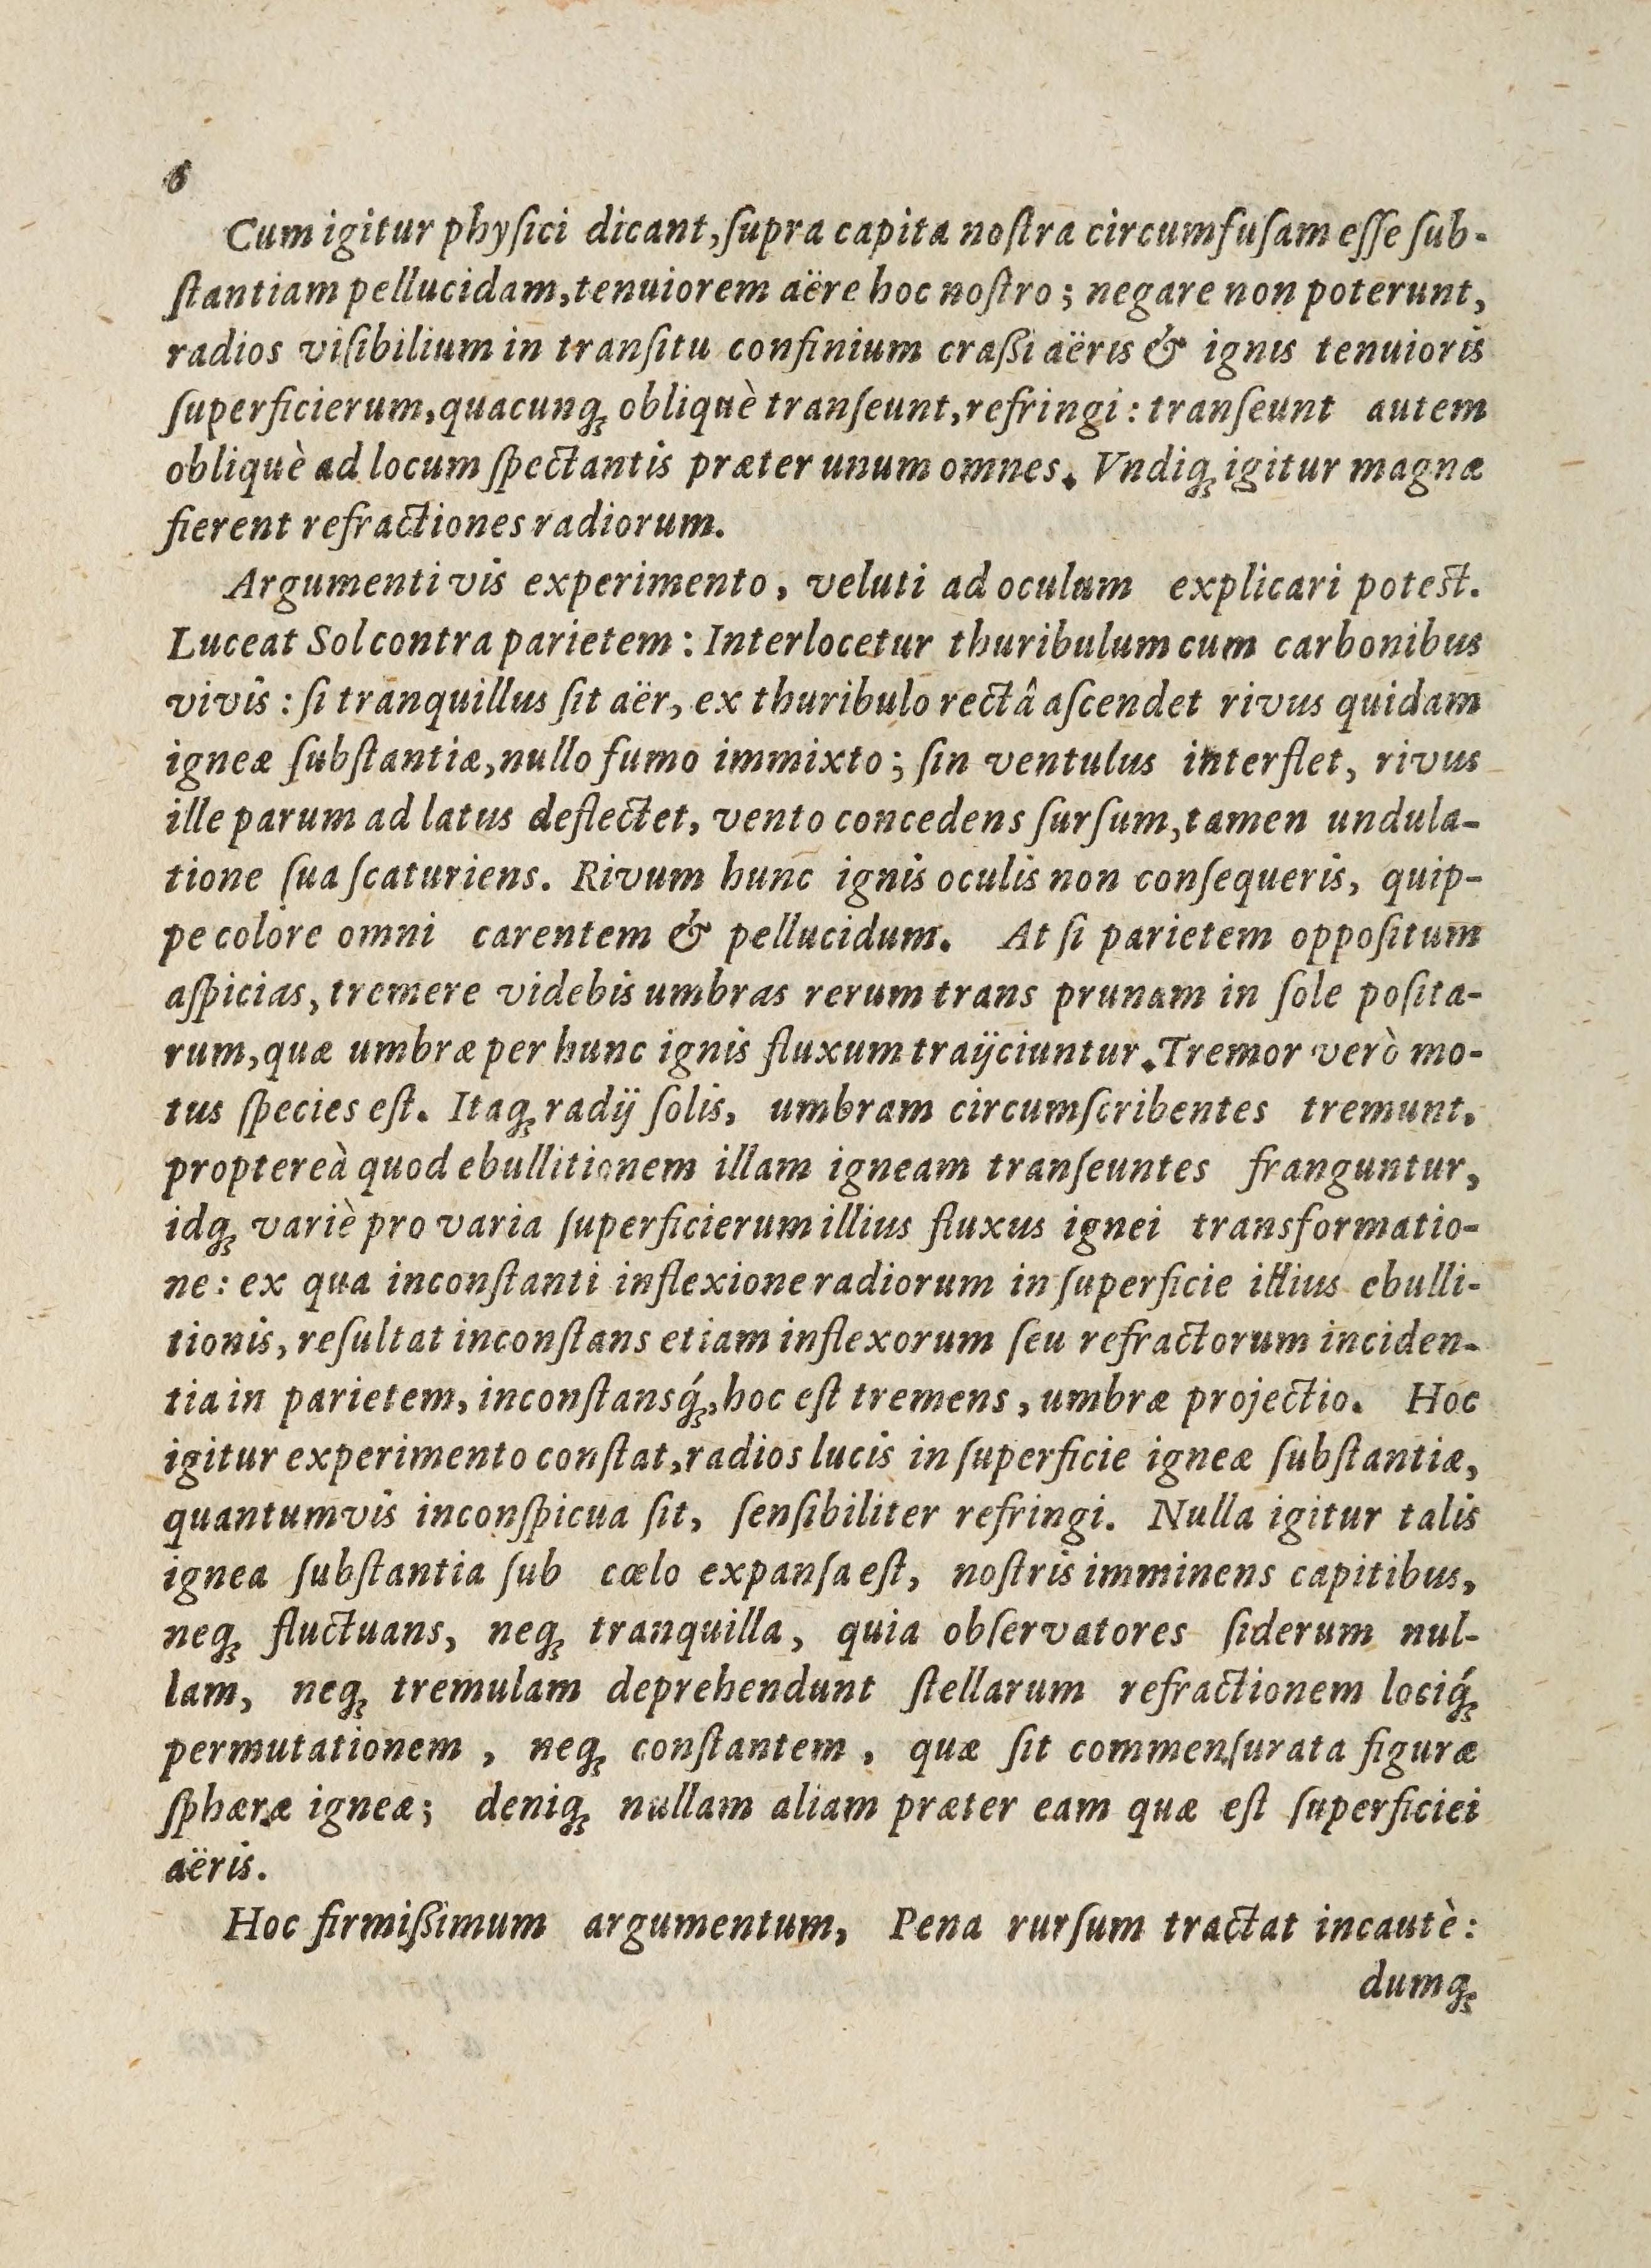 6
Cum igitur phyſici dicant, ſupra capita noſtra circumfuſam eſſe ſub-
ſtantiam pellucidam, tenuiorem aëre hoc noſtro; negare non poterunt,
radios viſibilium in tranſitu confinium craßi aëris & ignis tenuioris
ſuperficierum, quacunq́ꝫ obliquè tranſeunt, refringi: tranſeunt autem
obliquè ad locum ſpectantis præter unum omnes. Vndiqꝫ igitur magnæ
fierent refractiones radiorum.
Argumenti vis experimento, veluti ad oculum explicari poteſt.
Luceat Sol contra parietem: Interlocetur thuribulum cum carbonibus
vivis: ſi tranquillus ſit aër, ex thuribulo rectâ aſcendet rivus quidam
igneæ ſubſtantiæ, nullo fumo immixto; ſin ventulus interflet, rivus
ille parum ad latus deflectet, vento concedens ſurſum, tamen undula-
tione ſua ſcaturiens. Rivum hunc ignis oculis non conſequeris, quip-
pe colore omni carentem & pellucidum. At ſi parietem oppoſitum
aſpicias, tremere videbis umbras rerum trans prunam in ſole poſita-
rum, quæ umbræ per hunc ignis fluxum traijciuntur. Tremor verò mo-
tus ſpecies eſt. Itaqꝫ radij ſolis, umbram circumſcribentes tremunt,
proptereà quod ebullitionem illam igneam tranſeuntes franguntur,
idqꝫ variè pro varia ſuperficierum illius fluxus ignei transformatio-
ne: ex qua inconſtanti inflexione radiorum in ſuperficie illius ebulli-
tionis, reſultat inconſtans etiam inflexorum ſeu refractorum inciden-
tia in parietem, inconſtansq́ꝫ, hoc eſt tremens, umbræ projectio. Hoc
igitur experimento conſtat, radios lucis in ſuperficie igneæ ſubſtantiæ,
quantumvis inconſpicua ſit, ſenſibiliter refringi. Nulla igitur talis
ignea ſubſtantia ſub cœlo expanſa eſt, noſtris imminens capitibus,
neqꝫ fluctuans, neqꝫ tranquilla, quia obſervatores ſiderum nul-
lam, neqꝫ tremulam deprehendunt ſtellarum refractionem lociq́ꝫ
permutationem, neqꝫ conſtantem, quæ ſit commenſurata figuræ
ſphæræ igneæ; deniqꝫ nullam aliam præter eam quæ eſt ſuperficiei
aëris.
Hoc firmißimum argumentum, Pena rurſum tractat incautè:
dumqꝫ